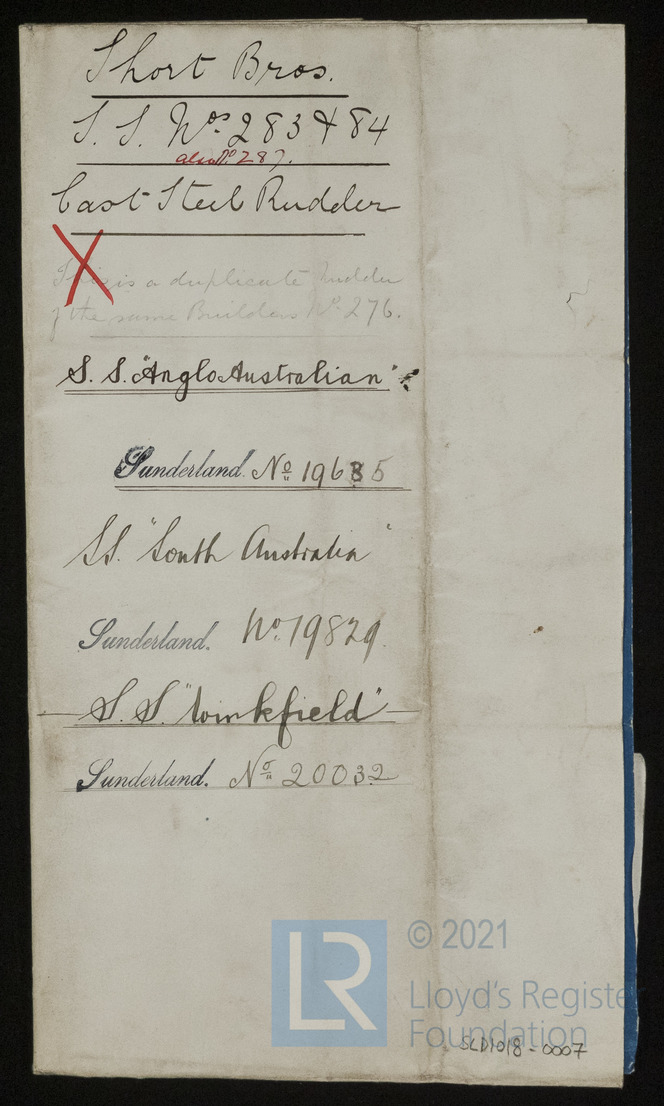 Short Bros.
S. S. Nos. 283 & 84
also No. 287.
Cast Steel Rudder
X
This is a duplicate Rudder
of the same Builders No. 276.
S. S. "Anglo Australian"
Sunderland. No 19685
SS. "South Australia"
Sunderland. No. 19829.
S. S. "Winkfield"
Sunderland. No 20032
LR
© 2021
Lloyd's Registe
Foundation
SLD1018-0007